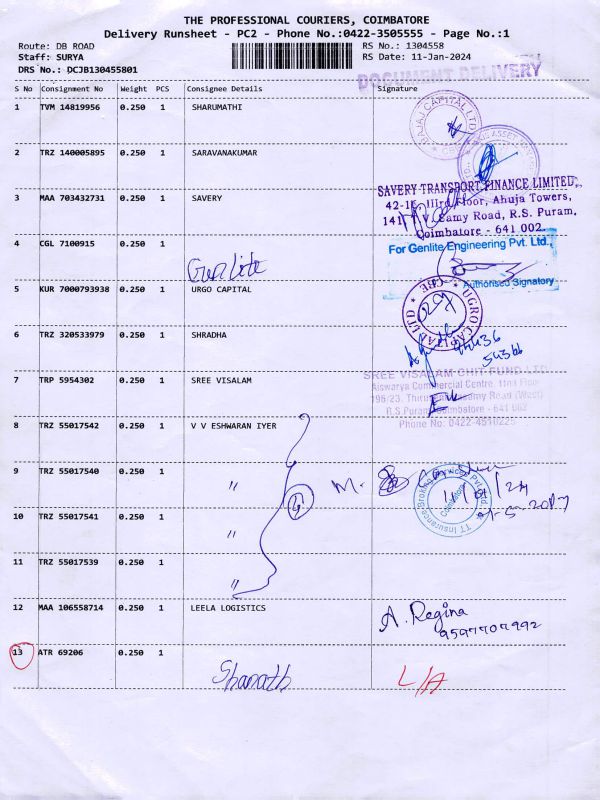 THE PROFESSIONAL COURIERS, COIMBATORE
Delivery Runsheet - PC2 - Phone No.:0422-3505555 - Page No.:1
Route: DB ROAD
RS No.: 1304558
Staff: SURYA
RS Date: 11-Jan-2024
DRS No.: DCJB130455801
DOCUMENT DELIVERY
S No Consignment No Weight PCS Consignee Details Signature
1 TVM 14819956 0.250 1 SHARUMATHI
BAJAJ CAPITAL LTD
2 TRZ 140005895 0.250 1 SARAVANAKUMAR
3 MAA 703432731 0.250 1 SAVERY
SAVERY TRANSPORT FINANCE LIMITED,
42-16, IIIrd Floor, Ahuja Towers,
Samy Road, R.S. Puram,
Coimbatore - 641 002.
4 CGL 7100915 0.250 1 Genlite
For Genlite Engineering Pvt. Ltd.,
Authorised Signatory
5 KUR 7000793938 0.250 1 URGO CAPITAL
UGRO CAPITAL LTD
CBE
6 TRZ 320533979 0.250 1 SHRADHA
54366
7 TRP 5954302 0.250 1 SREE VISALAM
SREE VISALAM CHIT FUND LTD
Aiswarya Commercial Centre, 11H Floor
196/23, Road (West)
R.S.Puram, Coimbatore - 641 002
Phone No: 0422-4510225
8 TRZ 55017542 0.250 1 V V ESHWARAN IYER
9 TRZ 55017540 0.250 1 "
4
M.
TT Insurance Broking Services Pvt. Ltd.
Coimbatore
11/01/24
10 TRZ 55017541 0.250 1 "
11 TRZ 55017539 0.250 1 "
12 MAA 106558714 0.250 1 LEELA LOGISTICS
A. Regina
9597707992
13 ATR 69206 0.250 1 Sharath L/A